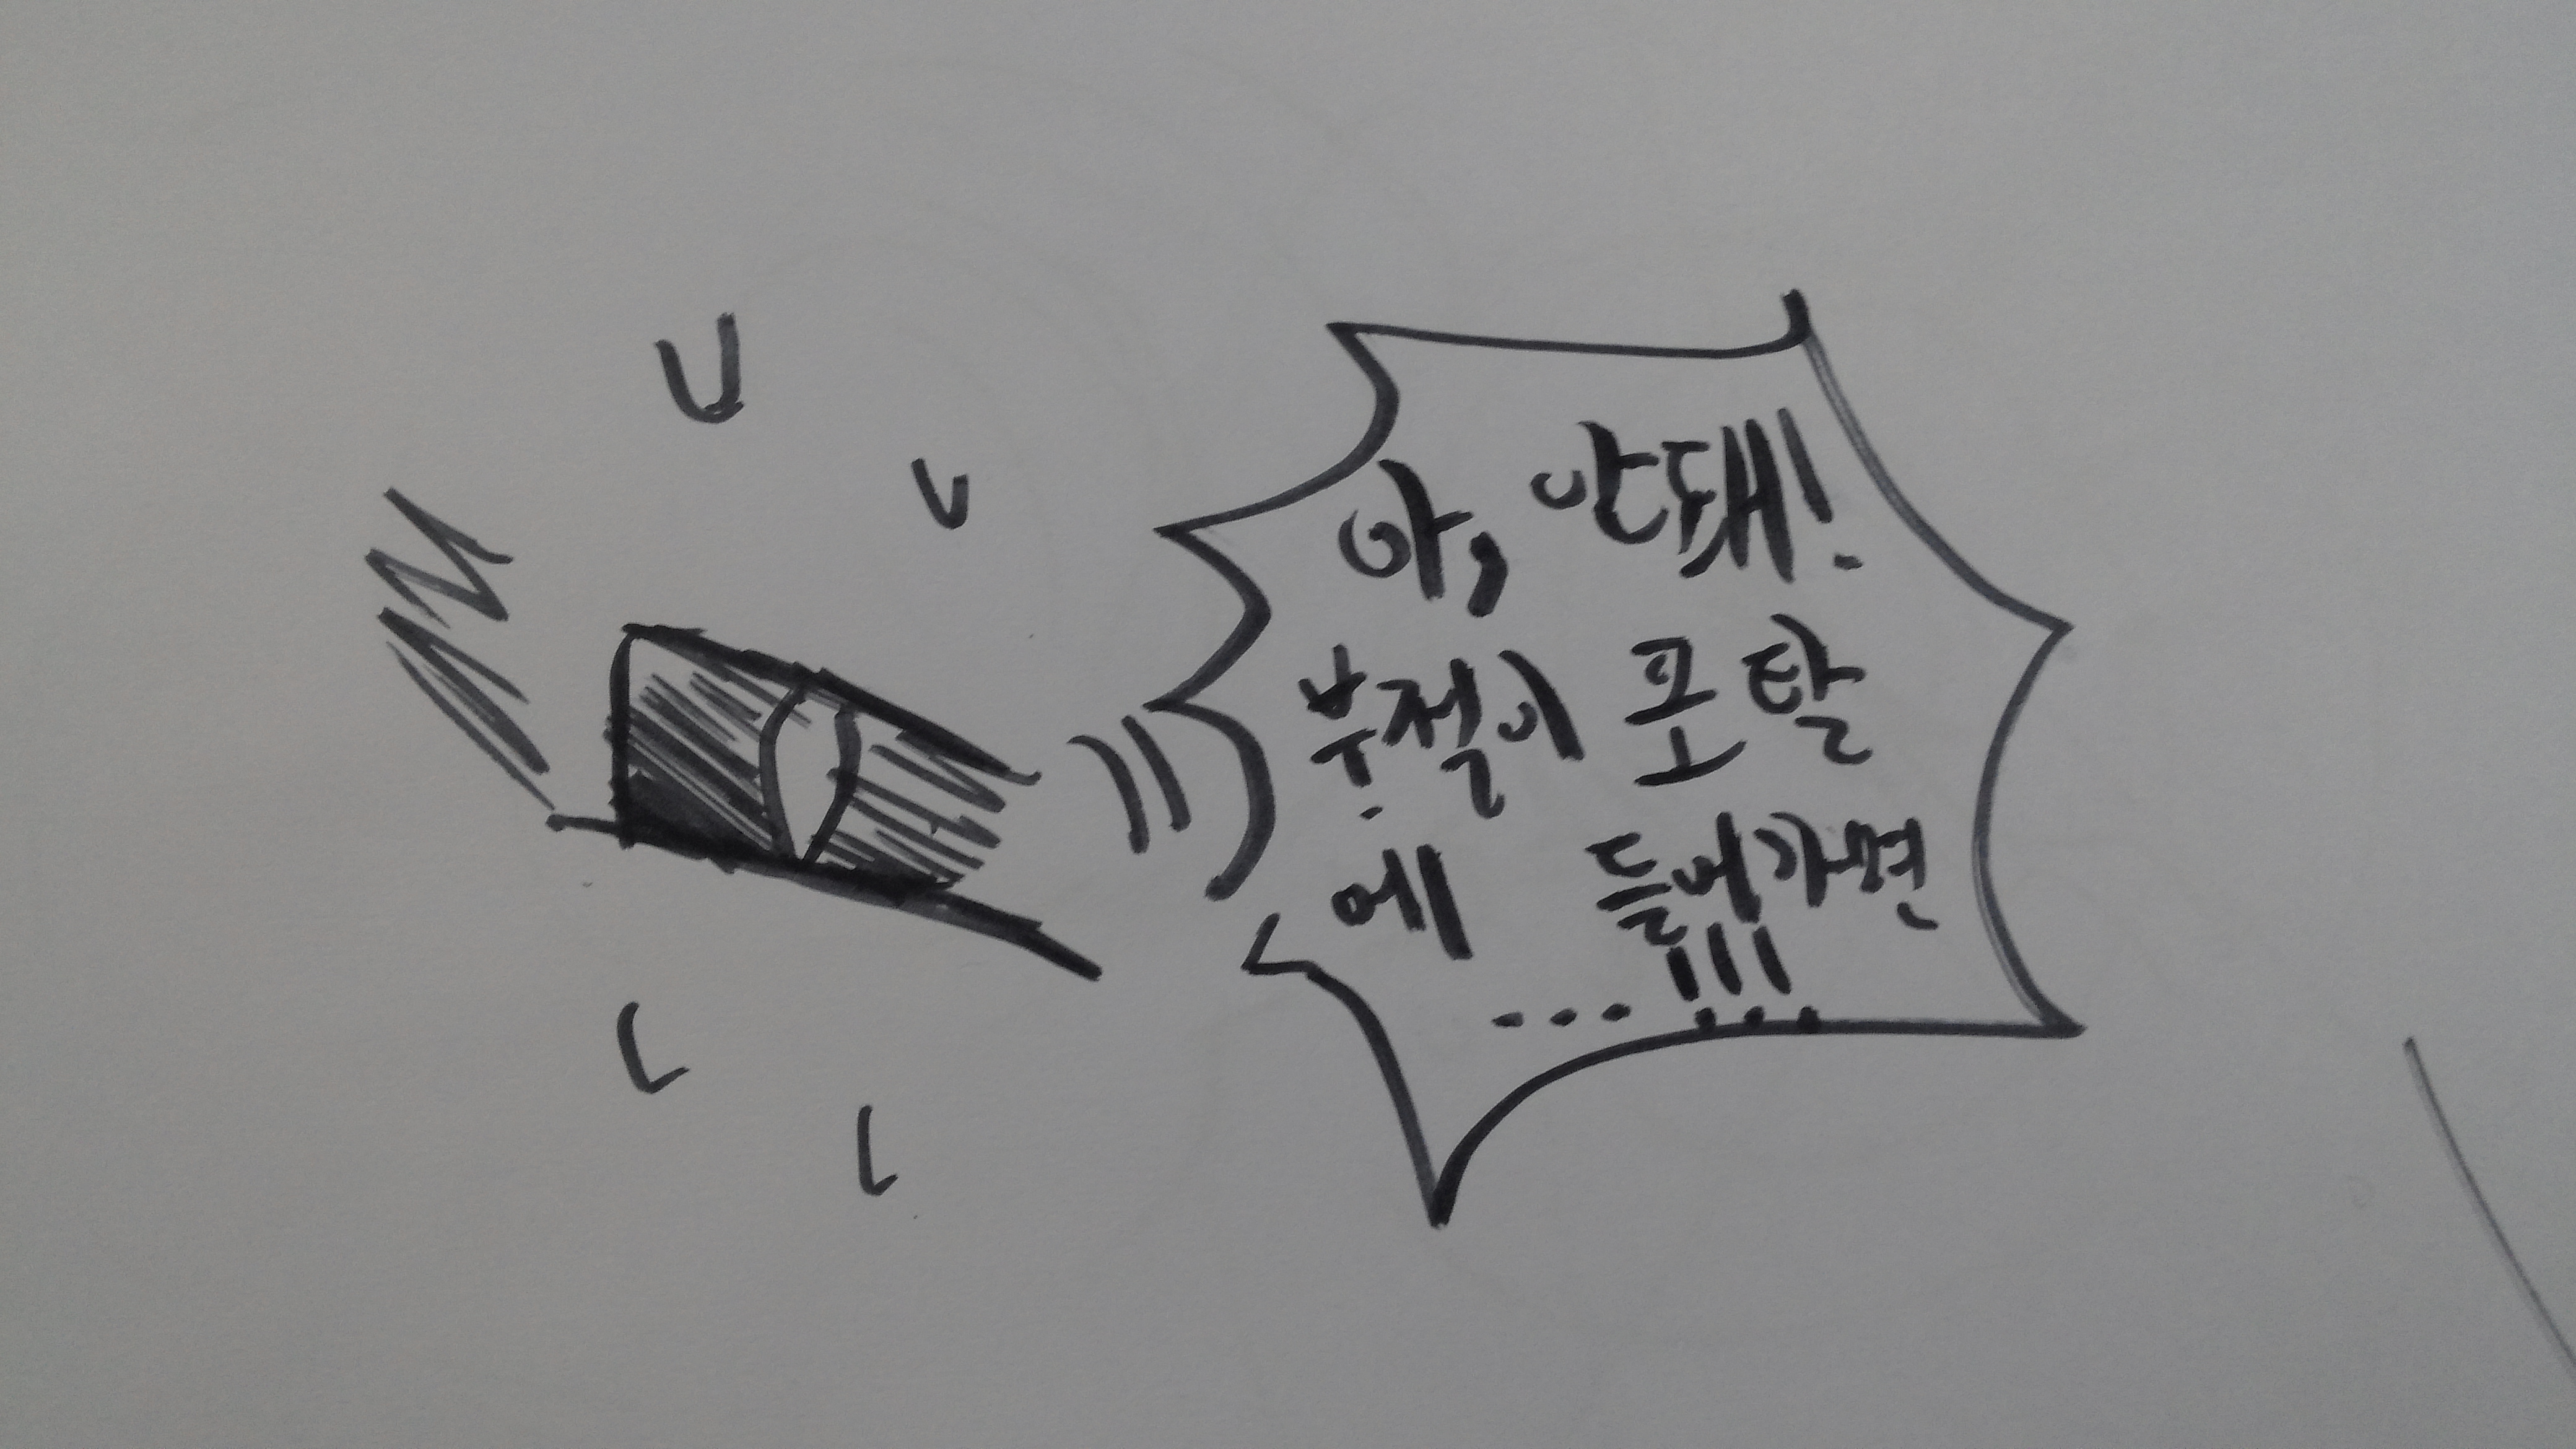 아, 안돼!
부젤이 포탈
에 들어가면
...!!!